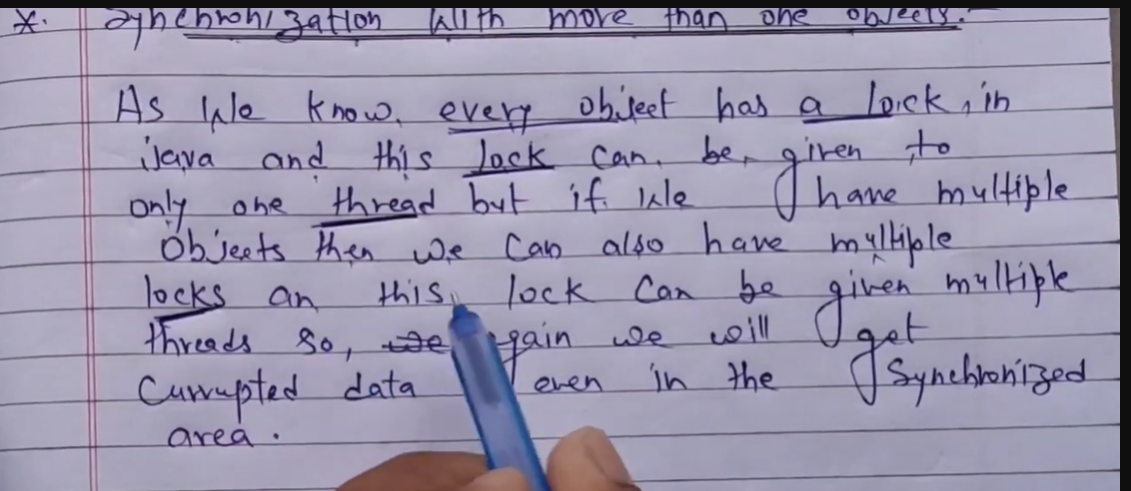 *. Synchronization with more than one objects.
As we know, every object has a lock, in
java and this lock can be given to
only one thread but if we have multiple
objects then we can also have multiple
locks an this lock can be given multiple
threads so, we again we will get
Currupted data even in the Synchronized
area.